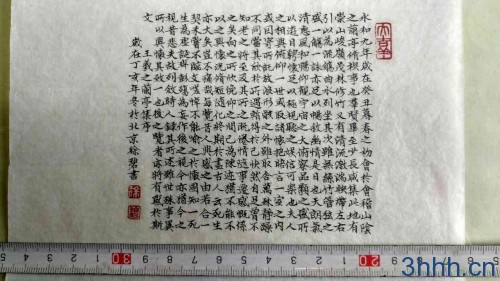 永和九年歲在癸丑暮春之初會於會稽山陰
之蘭亭修禊事也羣賢畢至少長咸集此地有
崇山峻嶺茂林修竹又有清流激湍映帶左右
引以為流觴曲水列坐其次雖無絲竹管弦之
盛一觴一詠亦足以暢敘幽情是日也天朗氣
清惠風和暢仰觀宇宙之大俯察品類之盛所
以遊目騁懷足以極視聽之娛信可樂也夫人
之相與俯仰一世或取諸懷抱悟言一室之內
或因寄所託放浪形骸之外雖取舍萬殊靜躁
不同當其欣於所遇暫得於己快然自足曾不
知老之將至及其所之既惓情隨事遷感慨係
之矣向之所欣俛仰之間已為陳迹猶不能不
以之興懷況修短隨化終期於盡古人云死生
亦大矣豈不痛哉每覽昔人興感之由若合一
契未嘗不臨文嗟悼不能喻之於懷固知一死
生為虛誕齊彭殤為妄作後之視今亦猶今之
視昔悲夫故列敘時人錄其所述雖世殊事異
所以興懷其致一也後之覽者亦將有感於斯
文
王羲之蘭亭集序
歲在丁亥年冬於北京徐碧書
3hhh.cn